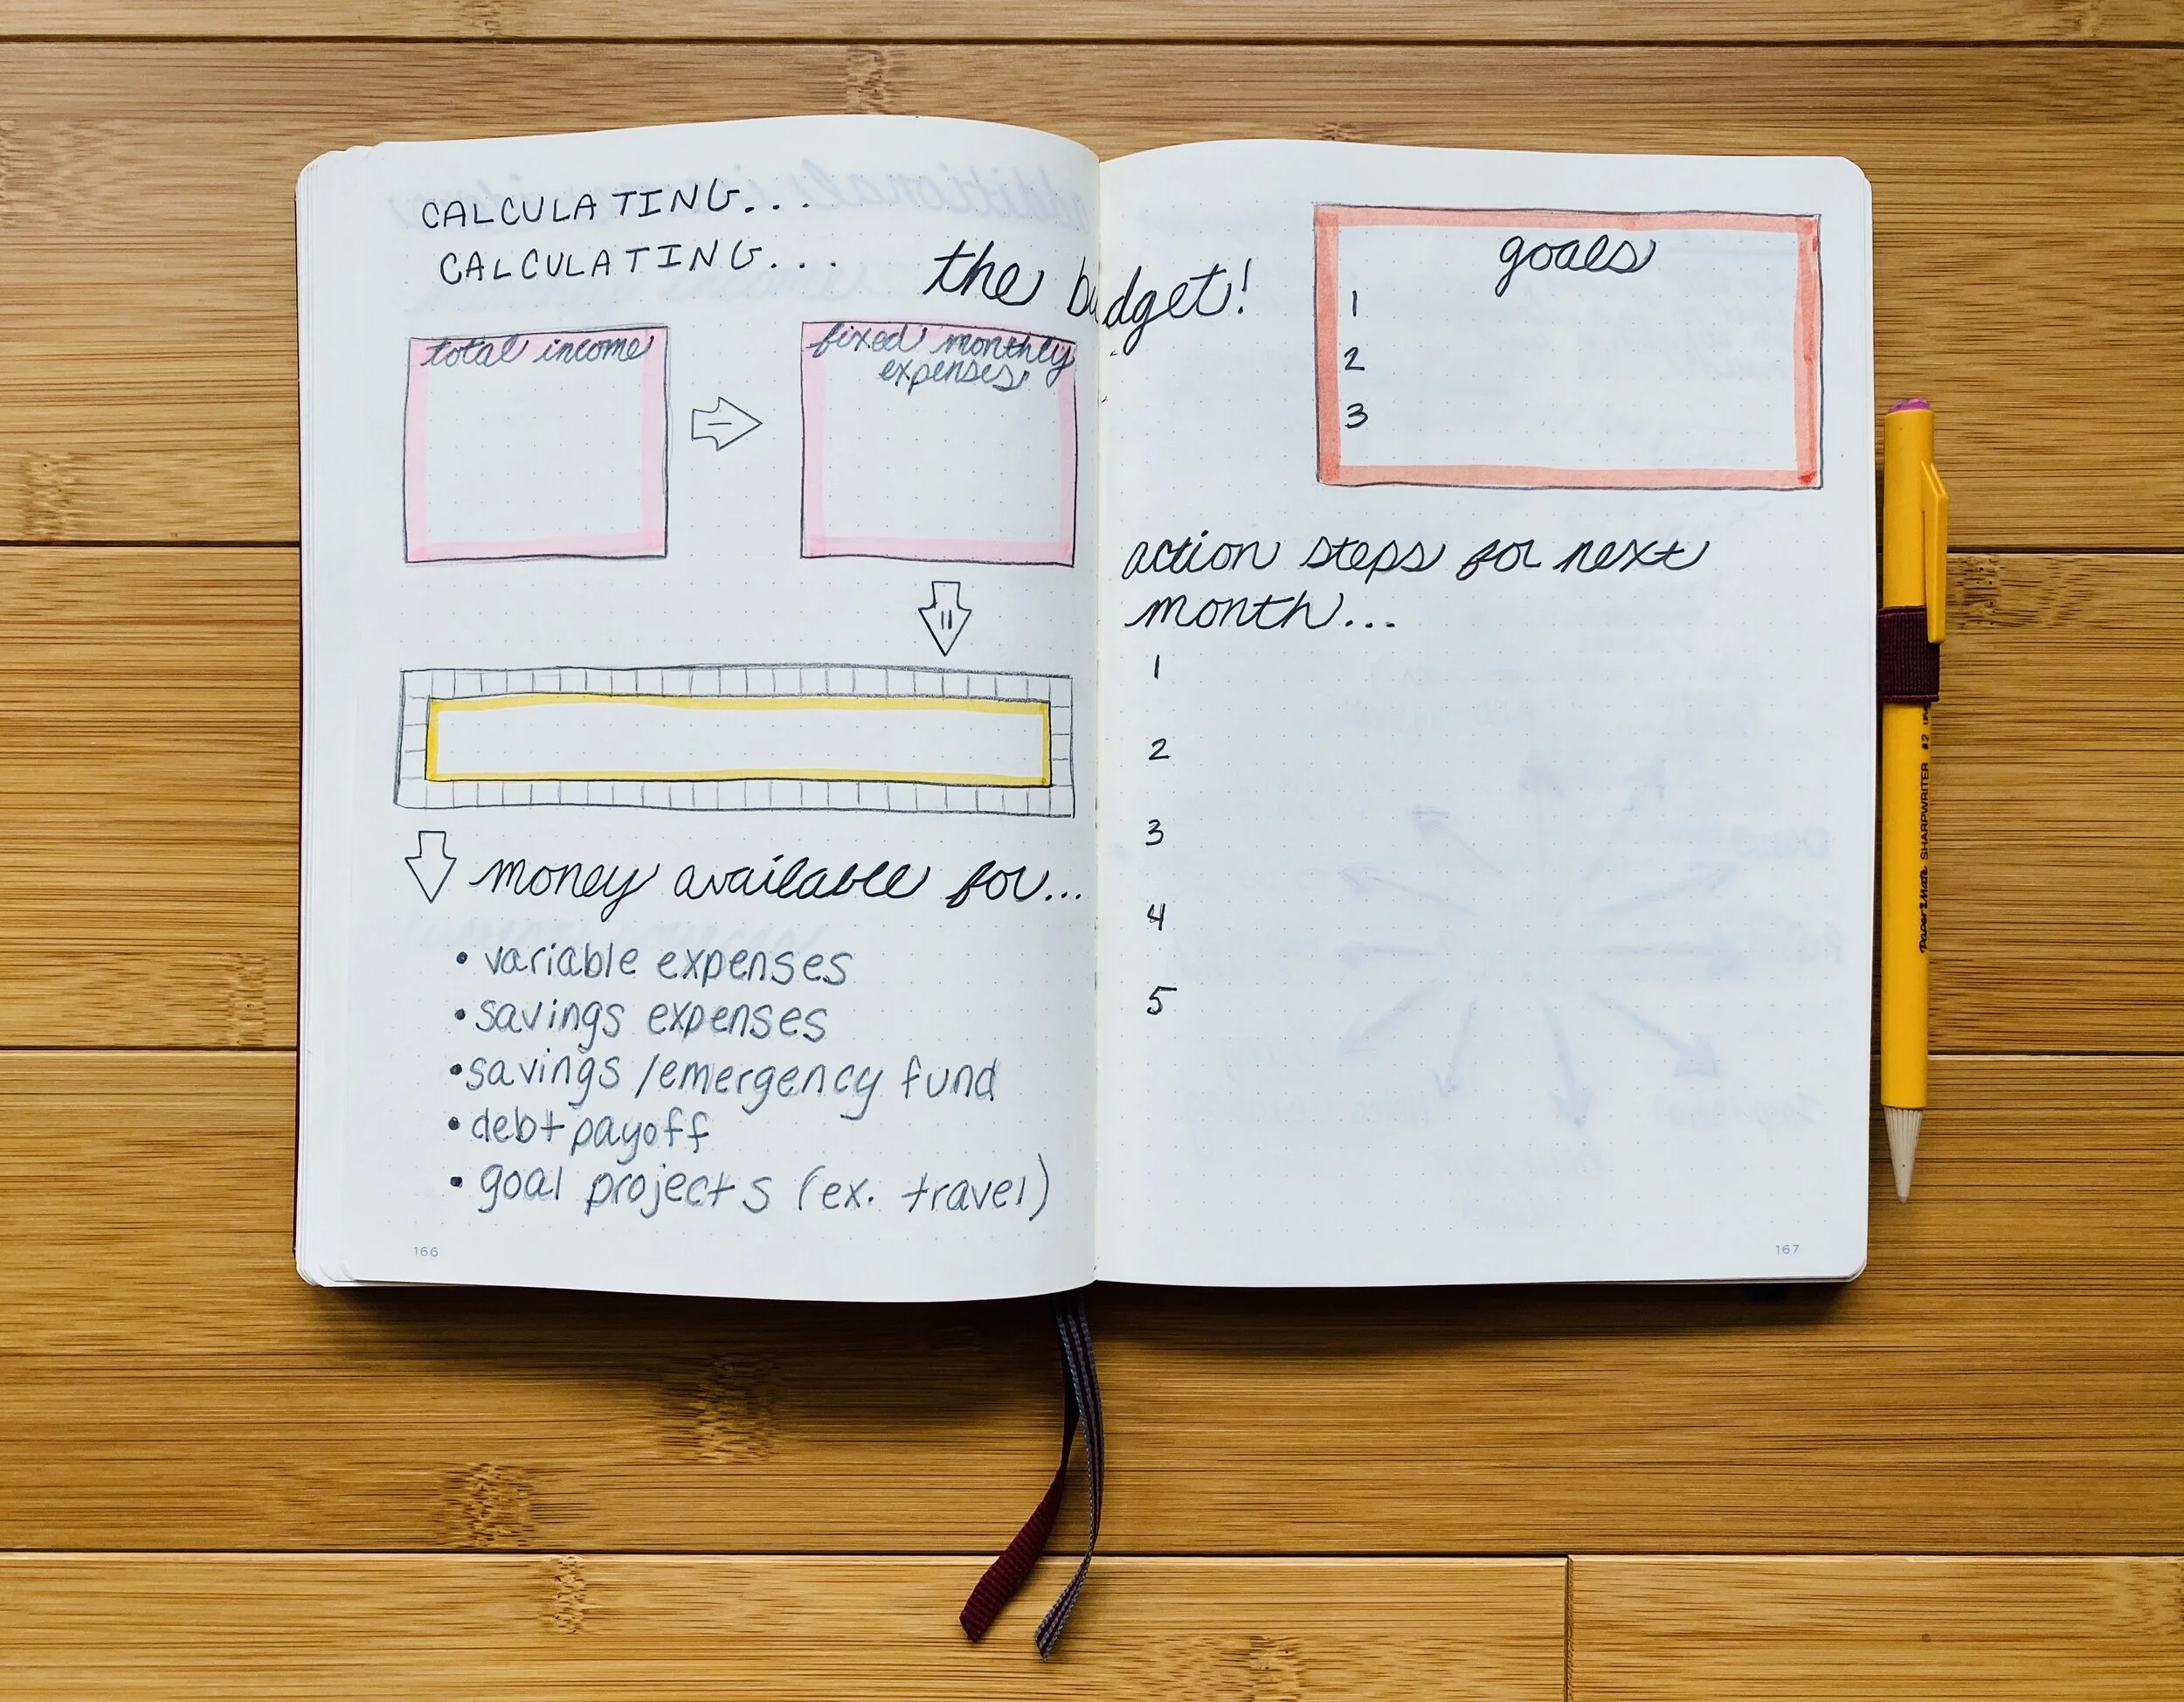 CALCULATING...
CALCULATING...
the budget!
total income
fixed monthly
expenses
-
=
money available for...
• variable expenses
• savings expenses
• savings/emergency fund
• debt payoff
• goal projects (ex. travel)
166
goals
1
2
3
action steps for next
month...
1
2
3
4
5
167
Paper Mate SHARPWRITER #2